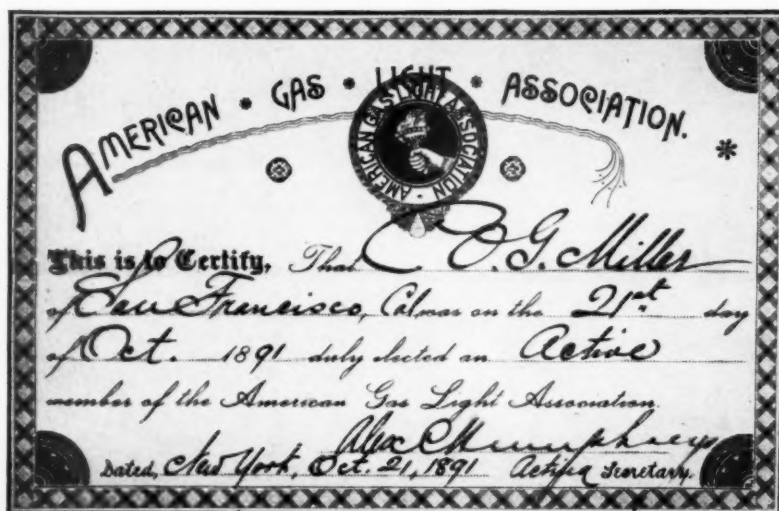 AMERICAN GAS LIGHT ASSOCIATION.
AMERICAN GAS LIGHT ASSOCIATION
This is to Certify, That C. O. G. Miller
of San Francisco, Cal, was on the 21st day
of Oct. 1891 duly elected an Active
member of the American Gas Light Association.
Alex C Humphreys
Dated, New York, Oct. 21, 1891 Acting Secretary.